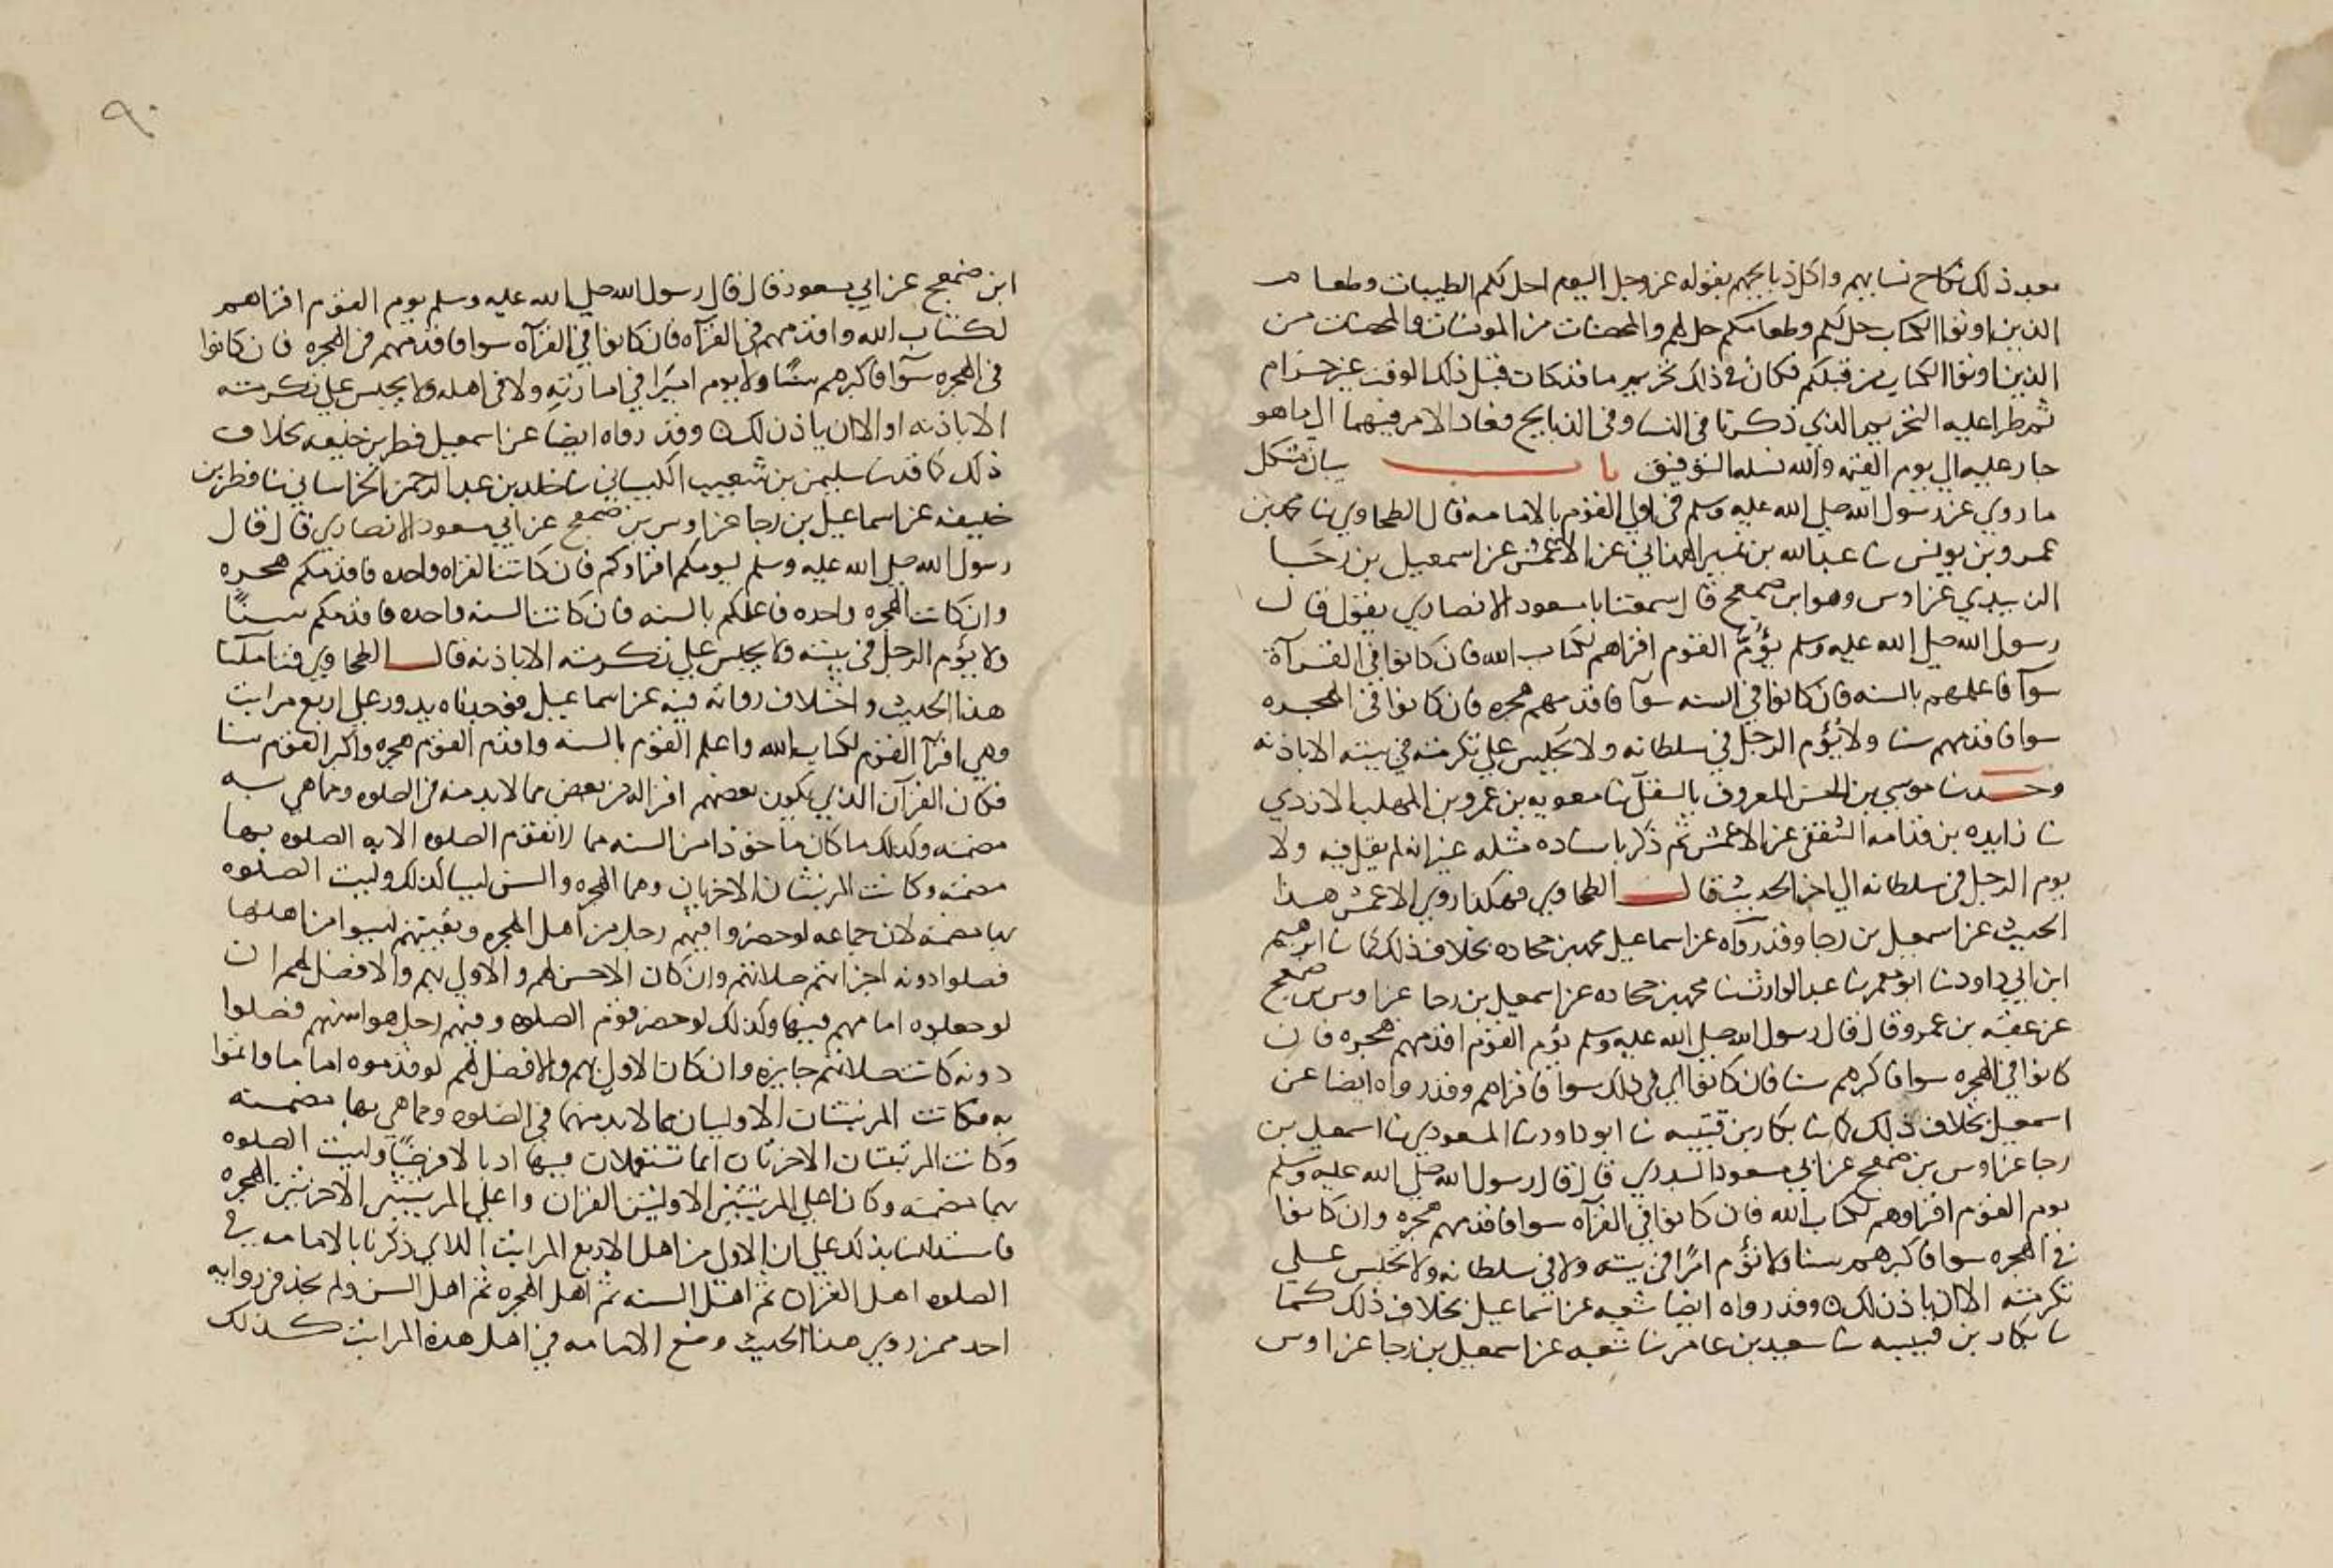 بعد ذلك نكاح نسايهم واكل ذبايحهم بقوله عز وجل اليوم احل لكم الطيبات وطعام
الذين اوتوا الكتاب حل لكم وطعامكم حل لهم والمحصنات من المومنات والمحصنات من
الذين اوتوا الكتاب من قبلكم فكان في ذلك تحريم ما قد كان قبل ذلك الوقت غير حرام
ثم طرا عليه التحريم الذي ذكرنا في النسا وفي الذبايح فعاد الامر فيهما الى ما هو
جار عليه الى يوم القيمه والله نسله التوفيق باب بيان مشكل
ما روي عن رسول الله صلى الله عليه وسلم في اولى القوم بالامامه قال الطحاوي نا محمد بن
عمرو بن يونس نا عبد الله بن نمير الهمداني عن الاعمش عن اسمعيل بن رجا
الزبيدي عن اوس وهو ابن ضمعج قال سمعت ابا مسعود الانصاري يقول قال
رسول الله صلى الله عليه وسلم يؤم القوم اقراهم لكتاب الله فان كانوا في القرآة
سوآ فاعلمهم بالسنه فان كانوا في السنه سوآ فاقدمهم هجره فان كانوا في الهجره
سوا فاقدمهم سنا ولا يؤم الرجل في سلطانه ولا يجلس على تكرمته في بيته الا باذنه
وحدثنا موسى بن الحسن المعروف بالسقلي نا معويه بن عمرو بن المهلب الازدي
نا زايده بن قدامه الثقفي عن الاعمش ثم ذكر باسناده مثله غير انه لم يقل فيه ولا
يوم الرجل في سلطانه الى اخر الحديث قال الطحاوي فهكذا روى الاعمش هذا
الحديث عن اسمعيل بن رجا وقد رواه عن اسماعيل محمد بن جحاده بخلاف ذلك كما نا ابرهيم
ابن ابي داود نا ابو معمر نا عبد الوارث نا محمد بن جحاده عن اسمعيل بن رجا عن اوس بن ضمعج
عن عقبه بن عمرو قال قال رسول الله صلى الله عليه وسلم يؤم القوم اقدمهم هجره فان
كانوا في الهجره سوا فاكبرهم سنا فان كانوا في ذلك سوا فاقراهم وقد رواه ايضا عن
اسمعيل بخلاف ذلك كما نا بكار بن قتيبه نا ابو داود نا المسعودي نا اسمعيل بن
رجا عن اوس بن ضمعج عن ابي مسعود البدري قال قال رسول الله صلى الله عليه وسلم
يوم القوم اقراوهم لكتاب الله فان كانوا في القرآه سوا فاقدمهم هجره وان كانوا
في الهجره سوا فاكبرهم سنا ولا تؤم امرًا في بيته ولا في سلطانه ولا تجلس على
تكرمته الا ان ياذن لك وقد رواه ايضا شعبه عن اسماعيل بخلاف ذلك كما
نا بكار بن قتيبه نا سعيد بن عامر نا شعبه عن اسمعيل بن رجا عن اوس
٩٠
ابن ضمعج عن ابي مسعود قال قال رسول الله صلى الله عليه وسلم يوم القوم اقراهم
لكتاب الله واقدمهم في القرآه فان كانوا في القرآه سوا فاقدمهم في الهجره فان كانوا
في الهجره سوآ فاكبرهم سنًا ولا يوم اميرًا في امارته ولا في اهله ولا يجلس على تكرمته
الا باذنه او الا ان ياذن لك وقد رواه ايضا عن اسمعيل فطر بن خليفه بخلاف
ذلك كما قد نا سليمن بن شعيب الكيساني نا خلد بن عبد الرحمن الخراساني نا فطر بن
خليفه عن اسماعيل بن رجا عن اوس بن ضمعج عن ابي مسعود الانصاري قال قال
رسول الله صلى الله عليه وسلم ليومكم اقراوكم فان كانت القراه واحده فاقدمكم هجره
وان كانت الهجره واحده فاعلمكم بالسنه فان كانت السنه واحده فاقدمكم سنًا
ولا يؤم الرجل في بيته ولا يجلس على تكرمته الا باذنه قال الطحاوي فتاملنا
هذا الحديث واختلاف رواته فيه عن اسماعيل فوجدناه يدور على اربع مراتب
وهي اقرأ القوم لكتاب الله واعلم القوم بالسنه واقدم القوم هجره واكبر القوم سنا
فكان القرآن الذي يكون بعضهم اقرا له من بعض مما لابد منه في الصلوه ومما هي به
مضمنه وكذلك ما كان ماخوذا من السنه مما لا تقوم الصلوه الا به الصلوه بها
مضمنه وكانت المرتبتان الاخريان وهما الهجره والسن ليسا كذلك وليست الصلوه
بهما مضمنه لان جماعه لو حضروا فيهم رجل من اهل الهجره وبقيتهم ليسوا من اهلها
فصلوا دونه اجزاتهم صلاتهم وان كان الاحسن لهم والاولى بهم والافضل لهم ان
لو جعلوه امامهم فيها وكذلك لو حضر قوم الصلوه وفيهم رجل هو اسنهم فصلوا
دونه كانت صلاتهم جايزه وان كان الاولى بهم والافضل لهم لو قدموه اماما واتموا
به فكانت المرتبتان الاوليان مما لابد منهما في الصلوه ومما هي بها مضمنه
وكانت المرتبتان الاخرتان انما تستعملان فيها ادبا لا فرضًا وليست الصلوه
بهما مضمنه وكان اعلى المرتبتين الاوليتين القران واعلى المرتبتين الاخريتين الهجره
فاستدللنا بذلك على ان الاولى من اهل الاربع المراتب اللاي ذكرنا بالامامه في
الصلوه اهل القران ثم اهل السنه ثم اهل الهجره ثم اهل السن ولم نجد في روايه
احد ممن روى هذا الحديث وضع الامامه في اهل هذه المراتب كذلك